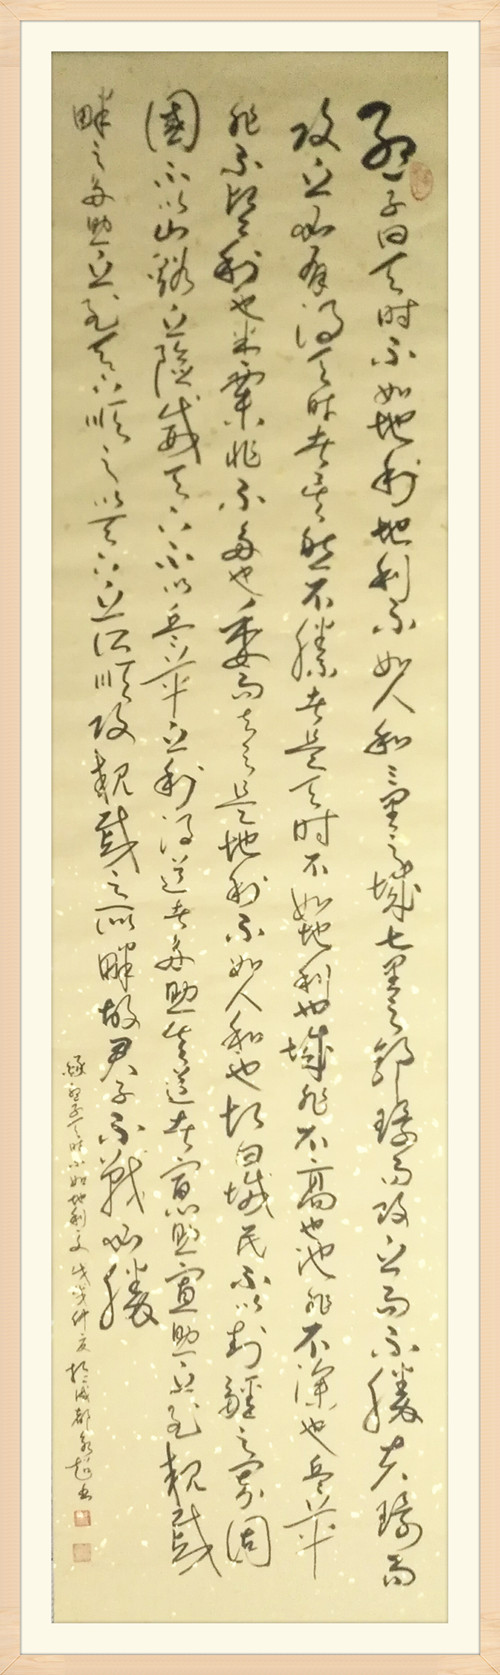 孟子曰天时不如地利地利不如人和三里之城七里之郭环而攻之而不胜夫环而
攻之必有得天时者矣然不胜者是天时不如地利也城非不高也池非不深也兵革
非不坚利也米粟非不多也委而去之是地利不如人和也故曰域民不以封疆之界固
國不以山谿之險威天下不以兵革之利得道者多助失道者寡助寡助之至親戚
畔之多助之至天下順之以天下之所順攻親戚之所畔故君子不戰必勝
孟子天时不如地利文戊戌仲夏於成都